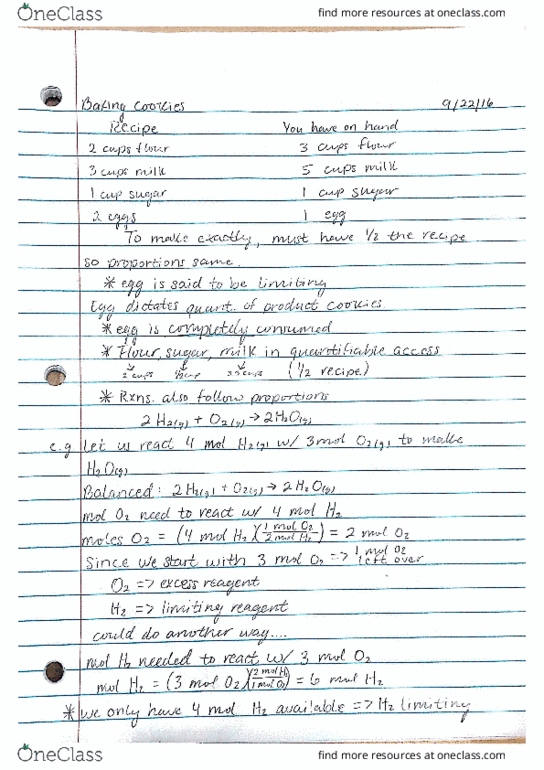 OneClass find more resources at oneclass.com
Baking Cookies 9/22/16
Recipe You have on hand
2 cups flour 3 cups flour
3 cups milk 5 cups milk
1 cup sugar 1 cup sugar
2 eggs 1 egg
To make exactly, must have 1/2 the recipe
so proportions same.
* egg is said to be limiting
Egg dictates quant. of product cookies
* egg is completely consumed
* Flour, sugar, milk in quantifiable access
2 cups 1/2 cup 3.5 cups (1/2 recipe)
* Rxns. also follow proportions
2 H2(g) + O2(g) → 2H2O(g)
e.g. Let us react 4 mol H2(g) w/ 3 mol O2(g) to make
H2O(g)
Balanced: 2H2(g) + O2(g) → 2 H2O(g)
mol O2 need to react w/ 4 mol H2
moles O2 = (4 mol H2)(1 mol O2/2 mol H2) = 2 mol O2
Since we start with 3 mol O2 => 1 mol O2 left over
O2 => excess reagent
H2 => limiting reagent
could do another way....
mol H2 needed to react w/ 3 mol O2
mol H2 = (3 mol O2)(2 mol H2/1 mol O2) = 6 mol H2
* we only have 4 mol H2 available => H2 limiting
OneClass find more resources at oneclass.com